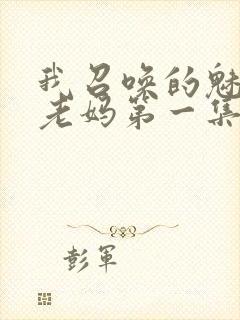 我召唤的魅
老妈第一集
彭军